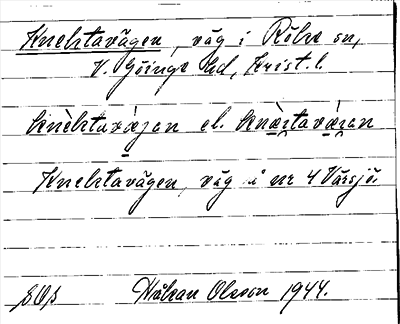 Knektavägen, väg i Röke sn,
V. Göinge hd, Krist. l.
knèktavæjan el. knæ̀tavæjan
Knektavägen, väg i nr 4 Värsjö.
Håkan Olsson 1944.